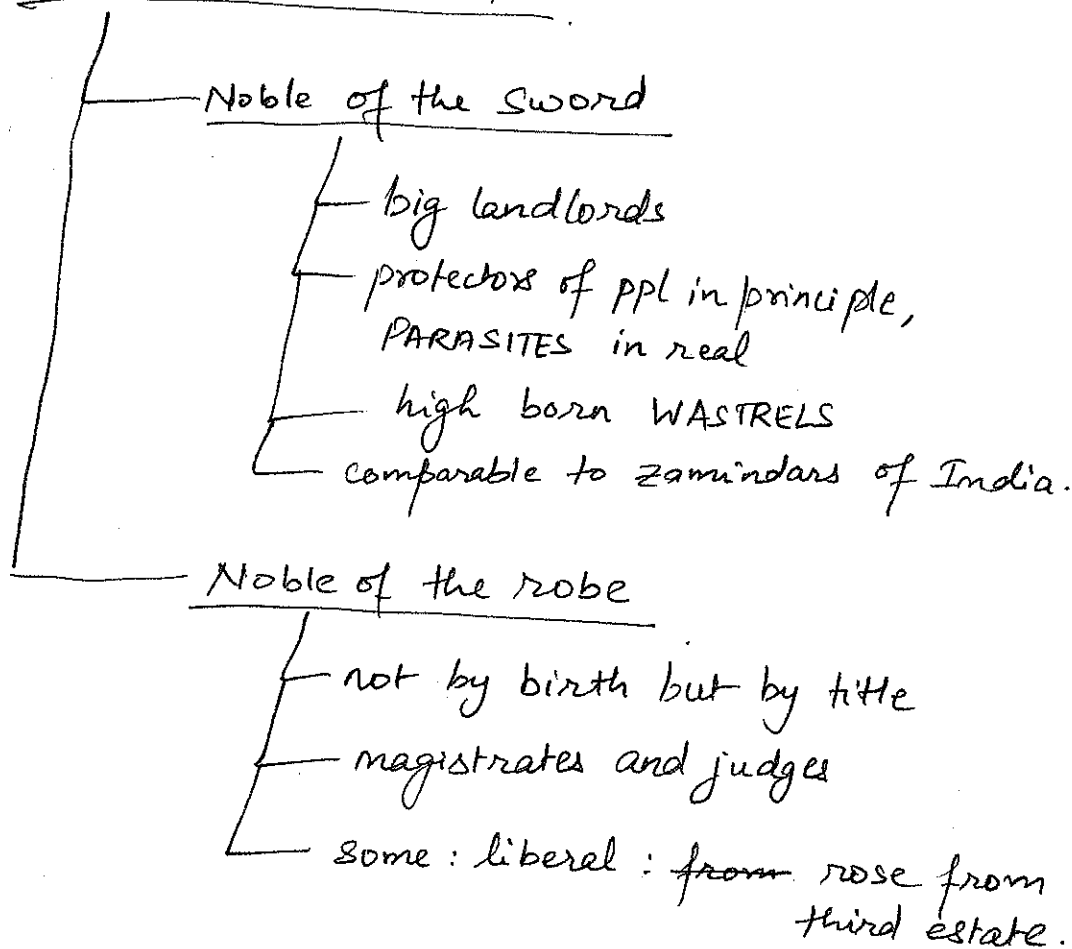 Noble of the sword
big landlords
protectors of ppl in principle,
PARASITES in real
high born WASTRELS
comparable to zamindars of India.
Noble of the robe
not by birth but by title
magistrates and judges
some : liberal : from rose from
third estate.